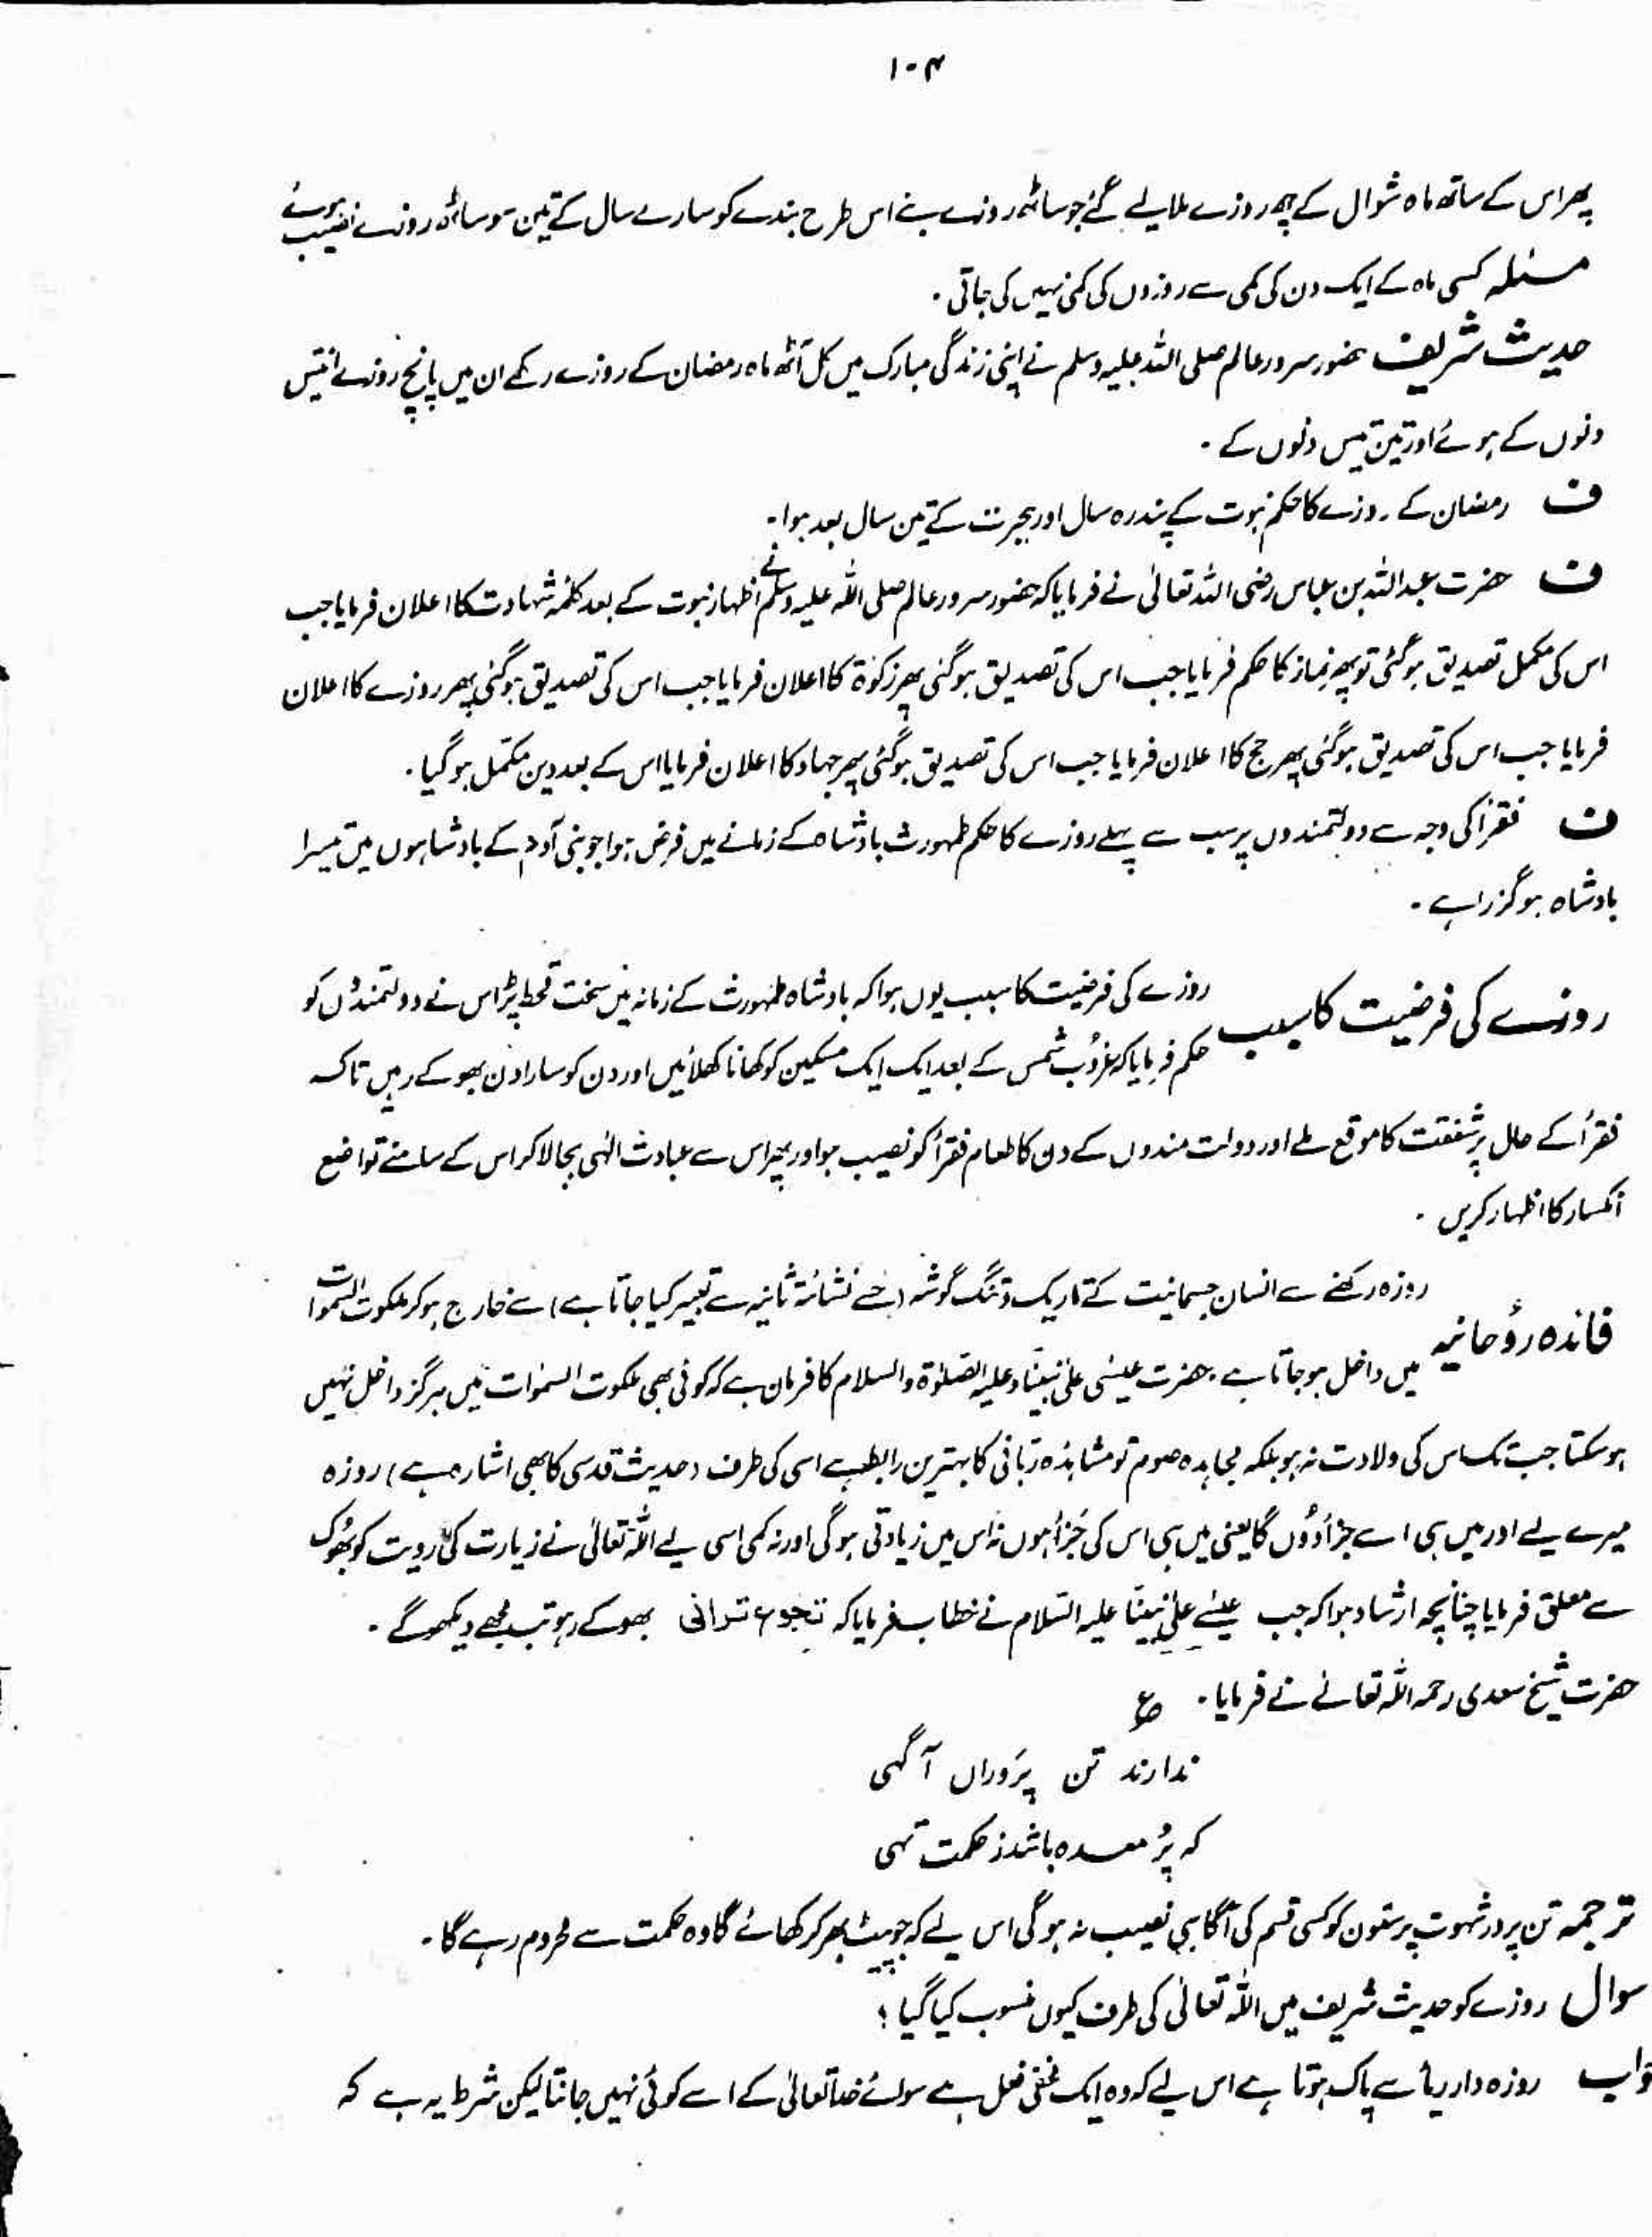 ۱۰۴
پھر اس کے ساتھ ماہ شوال کے چھ روزے ملا لیے گئے جو ساٹھ روزے بنے اس طرح بندے کو سارے سال کے تین سو ساٹھ روزے نصیب ہوئے
مسئلہ کسی ماہ کے ایک دن کی کمی سے روزوں کی کمی نہیں کی جاتی۔
حدیث شریف حضور سرور عالم صلی اللہ علیہ وسلم نے اپنی زندگی مبارک میں کل آٹھ ماہ رمضان کے روزے رکھے ان میں پانچ روزے انتیس
دنوں کے ہوئے اور تین تیس دنوں کے۔
ف رمضان کے روزے کا حکم نبوت کے پندرہ سال اور ہجرت کے تین سال بعد ہوا۔
ف حضرت عبداللہ بن عباس رضی اللہ تعالیٰ نے فرمایا کہ حضور سرور عالم صلی اللہ علیہ وسلم نے اظہار نبوت کے بعد کلمۂ شہادت کا اعلان فرمایا جب
اس کی مکمل تصدیق ہوگئی تو پھر نماز کا حکم فرمایا جب اس کی تصدیق ہوگئی پھر زکوٰۃ کا اعلان فرمایا جب اس کی تصدیق ہوگئی پھر روزے کا اعلان
فرمایا جب اس کی تصدیق ہوگئی پھر حج کا اعلان فرمایا جب اس کی تصدیق ہوگئی پھر جہاد کا اعلان فرمایا اس کے بعد دین مکمل ہوگیا۔
ف فقرأ کی وجہ سے دولتمندوں پر سب سے پہلے روزے کا حکم طہمورث بادشاہ کے زمانے میں فرض ہوا جو بنی آدم کے بادشاہوں میں تیسرا
بادشاہ ہو گزرا ہے۔
روزے کی فرضیت کا سبب روزے کی فرضیت کا سبب یوں ہوا کہ بادشاہ طہمورث کے زمانہ میں سخت قحط پڑا اس نے دولتمندوں کو
حکم فرمایا کہ غروب شمس کے بعد ایک ایک مسکین کو کھانا کھلائیں اور دن کو سارا دن بھوکے رہیں تاکہ
فقرأ کے حال پر شفقت کا موقع ملے اور دولت مندوں کے دن کا طعام فقرأ کو نصیب ہو اور پھر اس سے عبادت الٰہی بجا لا کر اس کے سامنے تواضع
انکسار کا اظہار کریں۔
فائدہ روحانیہ روزہ رکھنے سے انسان جسمانیت کے تاریک و تنگ گوشہ (جسے نشأۃ ثانیہ سے تعبیر کیا جاتا ہے) سے خارج ہو کر ملکوت السمٰوات
میں داخل ہو جاتا ہے۔ حضرت عیسٰی علیٰ نبینا و علیہ الصلوٰۃ والسلام کا فرمان ہے کہ کوئی بھی ملکوت السمٰوات میں ہرگز داخل نہیں
ہو سکتا جب تک اس کی ولادت نہ ہو بلکہ مجاہدہ صوم تو مشاہدہ ربانی کا بہترین رابطہ ہے اسی کی طرف (حدیث قدسی کا بھی اشارہ ہے) روزہ
میرے لیے اور میں ہی اسے جزأ دوں گا یعنی میں ہی اس کی جزأ ہوں نہ اس میں زیادتی ہوگی اور نہ کمی اسی لیے اللہ تعالیٰ نے زیارت کی رویت کو بھوک
سے معلق فرمایا چنانچہ ارشاد ہوا کہ جب عیسٰے علیٰ نبینا علیہ السلام نے خطاب فرمایا کہ تجوع ترانی بھوکے رہو تب مجھے دیکھو گے۔
حضرت شیخ سعدی رحمہ اللہ تعالےٰ نے فرمایا۔ ع
ندارند تن پروراں آگہی
کہ پُر معدہ باشد ز حکمت تہی
ترجمہ تن پرور شہوت پرستوں کو کسی قسم کی آگاہی نصیب نہ ہوگی اس لیے کہ جو پیٹ بھر کر کھائے گا وہ حکمت سے محروم رہے گا۔
سوال روزے کو حدیث شریف میں اللہ تعالیٰ کی طرف کیوں منسوب کیا گیا؟
واب روزہ دار ریأ سے پاک ہوتا ہے اس لیے کہ وہ ایک مخفی فعل ہے سوائے خدا تعالیٰ کے اسے کوئی نہیں جانتا لیکن شرط یہ ہے کہ